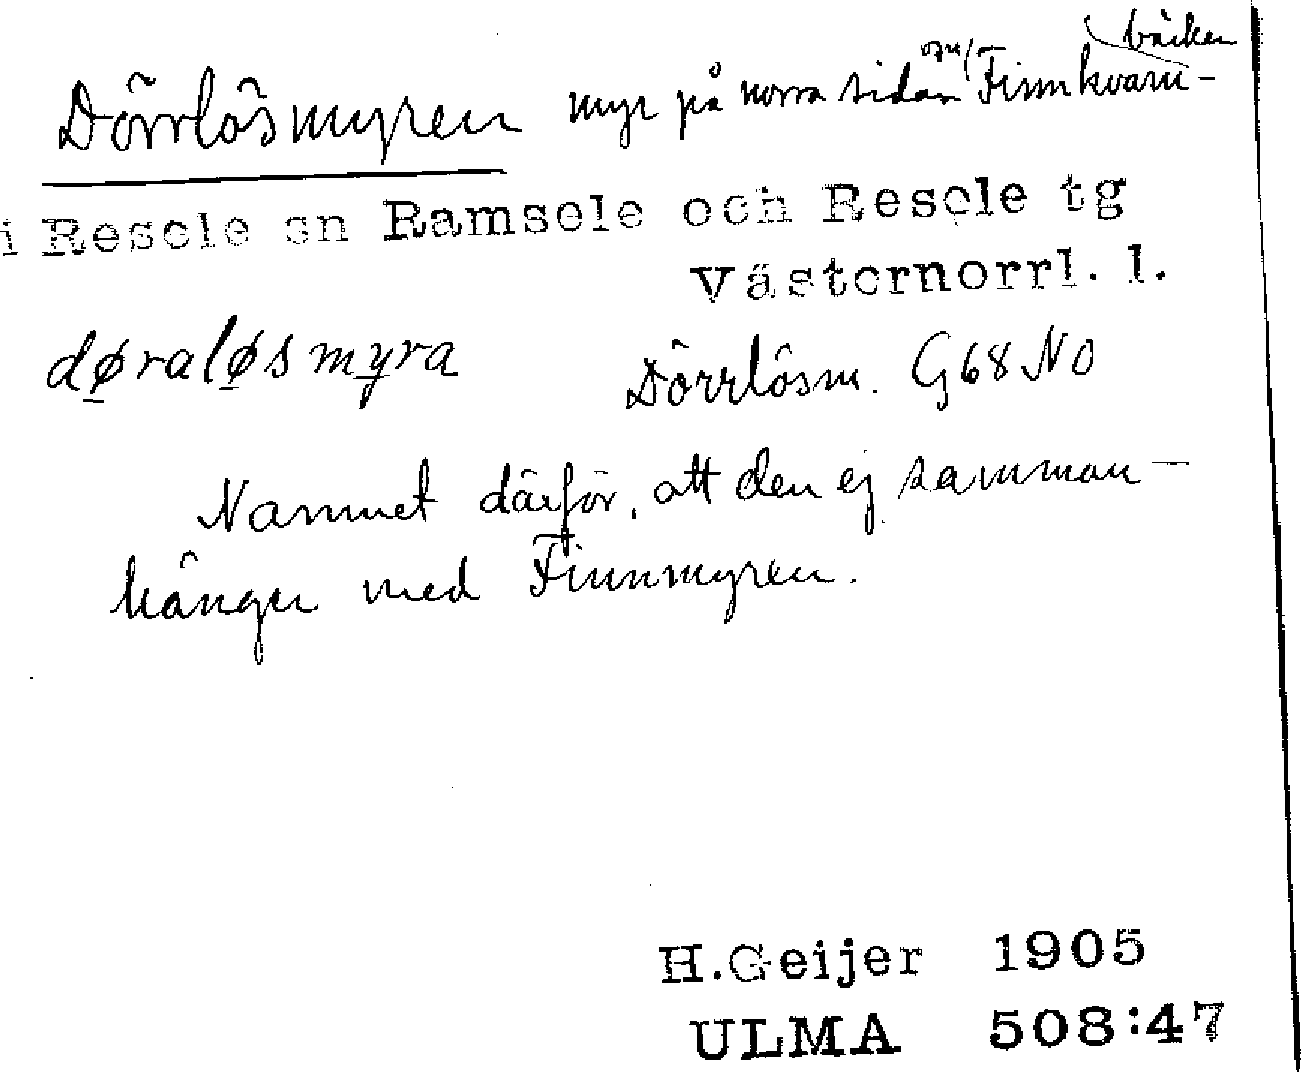 Dörrlösmyren myr på norra sidan om Finnkvarn-
bäcken
i Resele sn Ramsele och Resele tg
Västernorrl. l.
døraløsmyra Dörrlösm. G68 NO
Namnet därför, att den ej samman-
hänger med Finnmyren.
H.Geijer 1905
ULMA 508:47